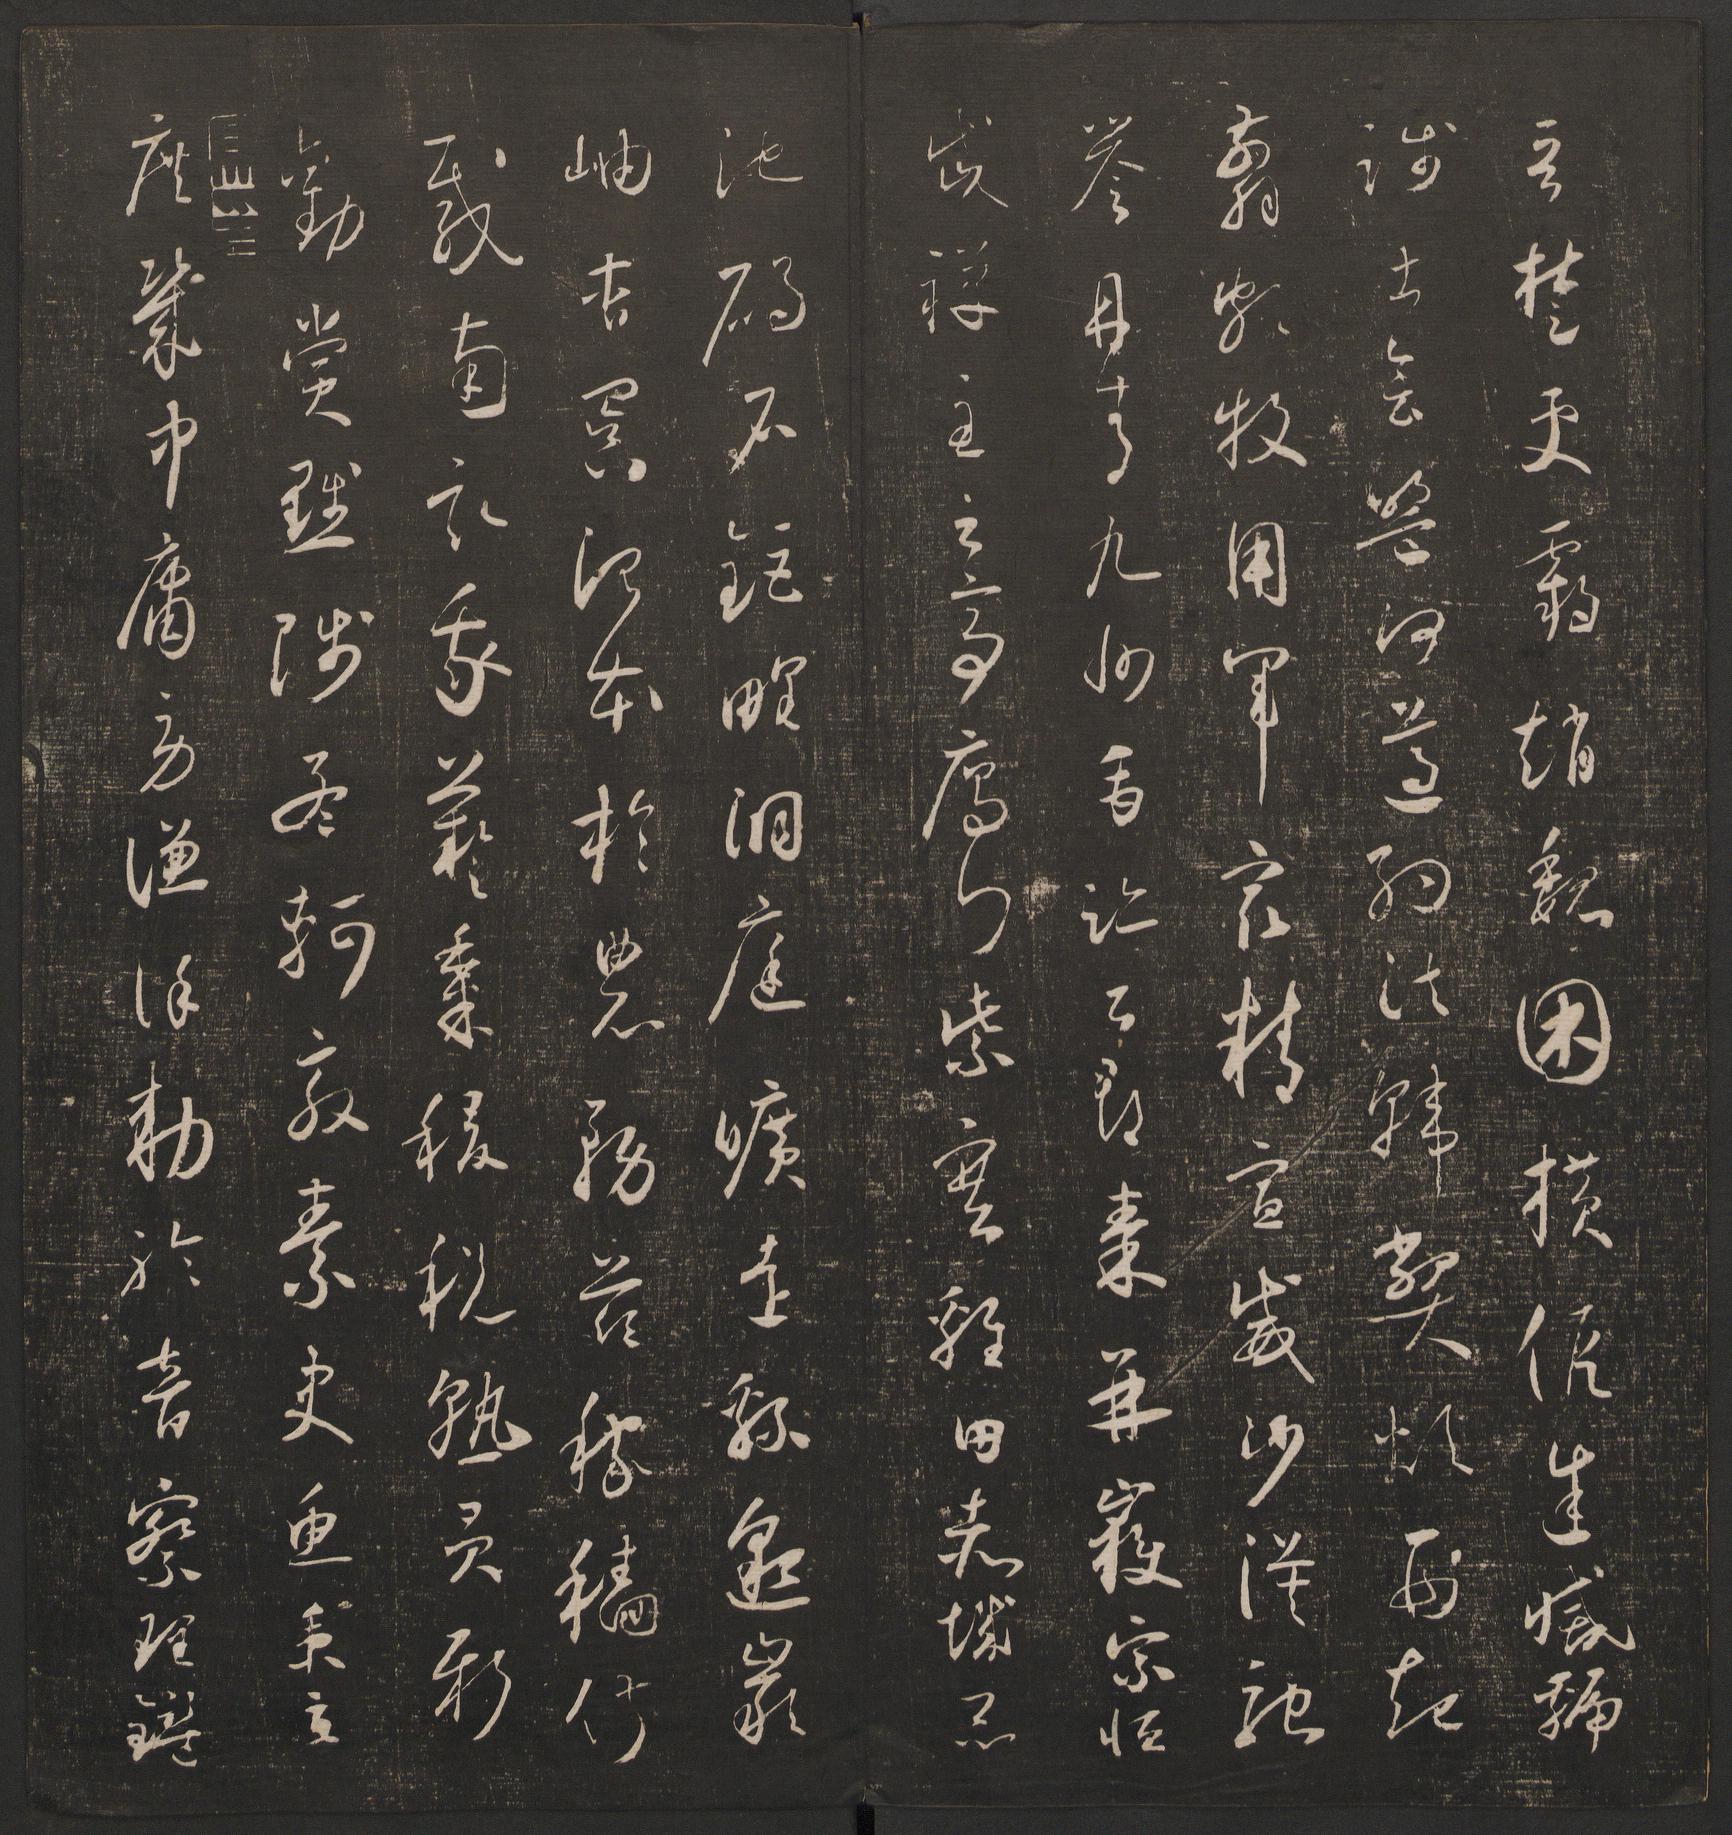 晉楚更霸趙魏困橫假途滅虢
踐土會盟何遵約法韓弊煩刑起
翦頗牧用軍最精宣威沙漠馳
譽丹青九州禹跡百郡秦并嶽宗恒
岱禪主云亭雁門紫塞雞田赤城昆
池碣石鉅野洞庭曠遠綿邈巖
岫杳冥治本於農務茲稼穡俶
載南畝我藝黍稷稅熟貢新
勸賞黜陟孟軻敦素史魚秉直
庶幾中庸勞謙謹勅聆音察理鑑